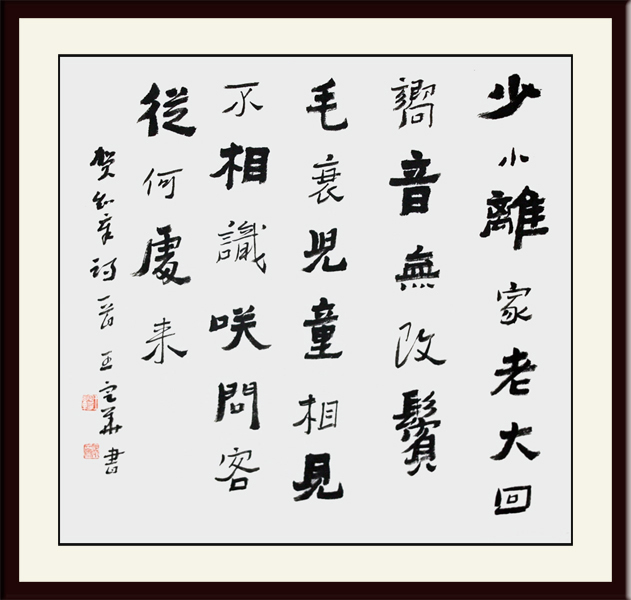 少小離家老大回
鄉音無改鬢
毛衰児童相見
不相識咲問客
從何處来
贺知章詩一首 王定華書